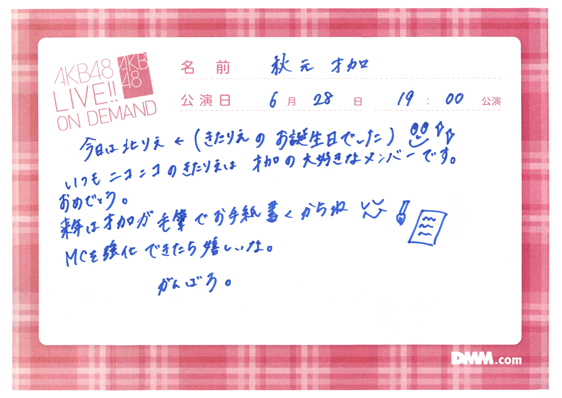 AKB48
LIVE!!
ON DEMAND
AKB
48
名前 秋元 才加
公演日 6月28日 19:00 公演
今日は北りえ←(きたりえのお誕生日でした)
いつもニコニコのきたりえは才加の大好きなメンバーです。
おめでとう。
来年は才加が毛筆でお手紙書くからね
MCを強化できたら嬉しいな。
がんばろう。
DMM.com